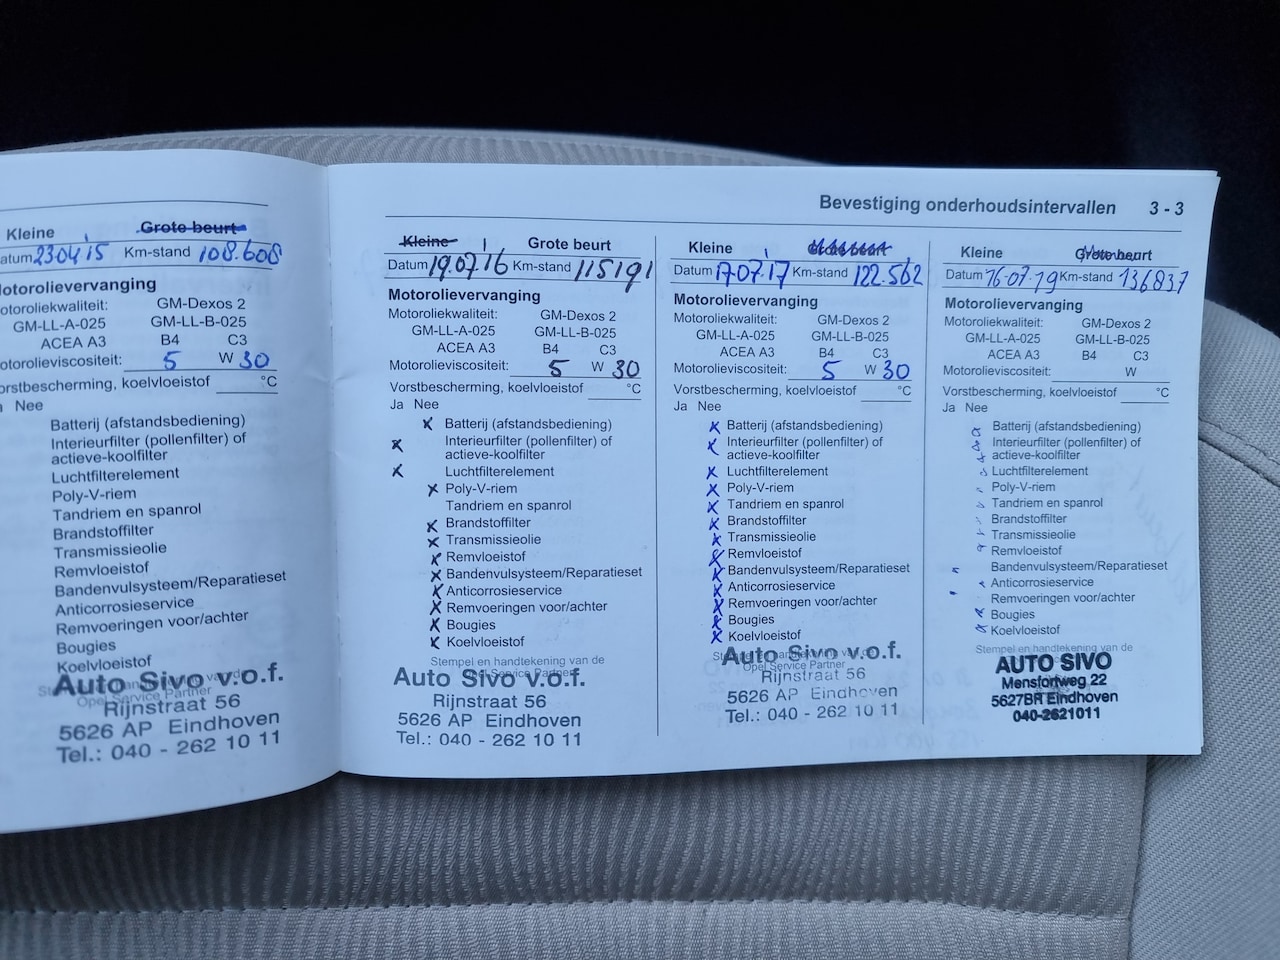 Bevestiging onderhoudsintervallen 3 - 3
Kleine Grote beurt
atum 23.04.'15 Km-stand 108.608
otorolievervanging
otoroliekwaliteit: GM-Dexos 2
GM-LL-A-025 GM-LL-B-025
ACEA A3 B4 C3
Motorolieviscositeit: 5 W 30
orstbescherming, koelvloeistof °C
a Nee
Batterij (afstandsbediening)
Interieurfilter (pollenfilter) of
actieve-koolfilter
Luchtfilterelement
Poly-V-riem
Tandriem en spanrol
Brandstoffilter
Transmissieolie
Remvloeistof
Bandenvulsysteem/Reparatieset
Anticorrosieservice
Remvoeringen voor/achter
Bougies
Koelvloeistof
Opel Service Partner
Auto Sivo v.o.f.
Rijnstraat 56
5626 AP Eindhoven
Tel.: 040 - 262 10 11
Kleine Grote beurt
Datum 19.07.'16 Km-stand 115191
Motorolievervanging
Motoroliekwaliteit: GM-Dexos 2
GM-LL-A-025 GM-LL-B-025
ACEA A3 B4 C3
Motorolieviscositeit: 5 W 30
Vorstbescherming, koelvloeistof °C
Ja Nee
x Batterij (afstandsbediening)
x Interieurfilter (pollenfilter) of
actieve-koolfilter
x Luchtfilterelement
x Poly-V-riem
Tandriem en spanrol
x Brandstoffilter
x Transmissieolie
x Remvloeistof
x Bandenvulsysteem/Reparatieset
x Anticorrosieservice
x Remvoeringen voor/achter
x Bougies
x Koelvloeistof
Stempel en handtekening van de
Opel Service Partner
Auto Sivo v.o.f.
Rijnstraat 56
5626 AP Eindhoven
Tel.: 040 - 262 10 11
Kleine Grote beurt
Datum 17.07.'17 Km-stand 122.562
Motorolievervanging
Motoroliekwaliteit: GM-Dexos 2
GM-LL-A-025 GM-LL-B-025
ACEA A3 B4 C3
Motorolieviscositeit: 5 W 30
Vorstbescherming, koelvloeistof °C
Ja Nee
x Batterij (afstandsbediening)
x Interieurfilter (pollenfilter) of
actieve-koolfilter
x Luchtfilterelement
x Poly-V-riem
x Tandriem en spanrol
x Brandstoffilter
x Transmissieolie
x Remvloeistof
x Bandenvulsysteem/Reparatieset
x Anticorrosieservice
x Remvoeringen voor/achter
x Bougies
x Koelvloeistof
Opel Service Partner
Auto Sivo v.o.f.
Rijnstraat 56
5626 AP Eindhoven
Tel.: 040 - 262 10 11
Kleine Grote beurt
Datum 16-07-'19 Km-stand 136837
Motorolievervanging
Motoroliekwaliteit: GM-Dexos 2
GM-LL-A-025 GM-LL-B-025
ACEA A3 B4 C3
Motorolieviscositeit: W
Vorstbescherming, koelvloeistof °C
Ja Nee
Batterij (afstandsbediening)
Interieurfilter (pollenfilter) of
actieve-koolfilter
Luchtfilterelement
Poly-V-riem
Tandriem en spanrol
Brandstoffilter
Transmissieolie
Remvloeistof
Bandenvulsysteem/Reparatieset
Anticorrosieservice
Remvoeringen voor/achter
Bougies
Koelvloeistof
Stempel en handtekening van de
AUTO SIVO
Mensfortweg 22
5627BR Eindhoven
040-2621011